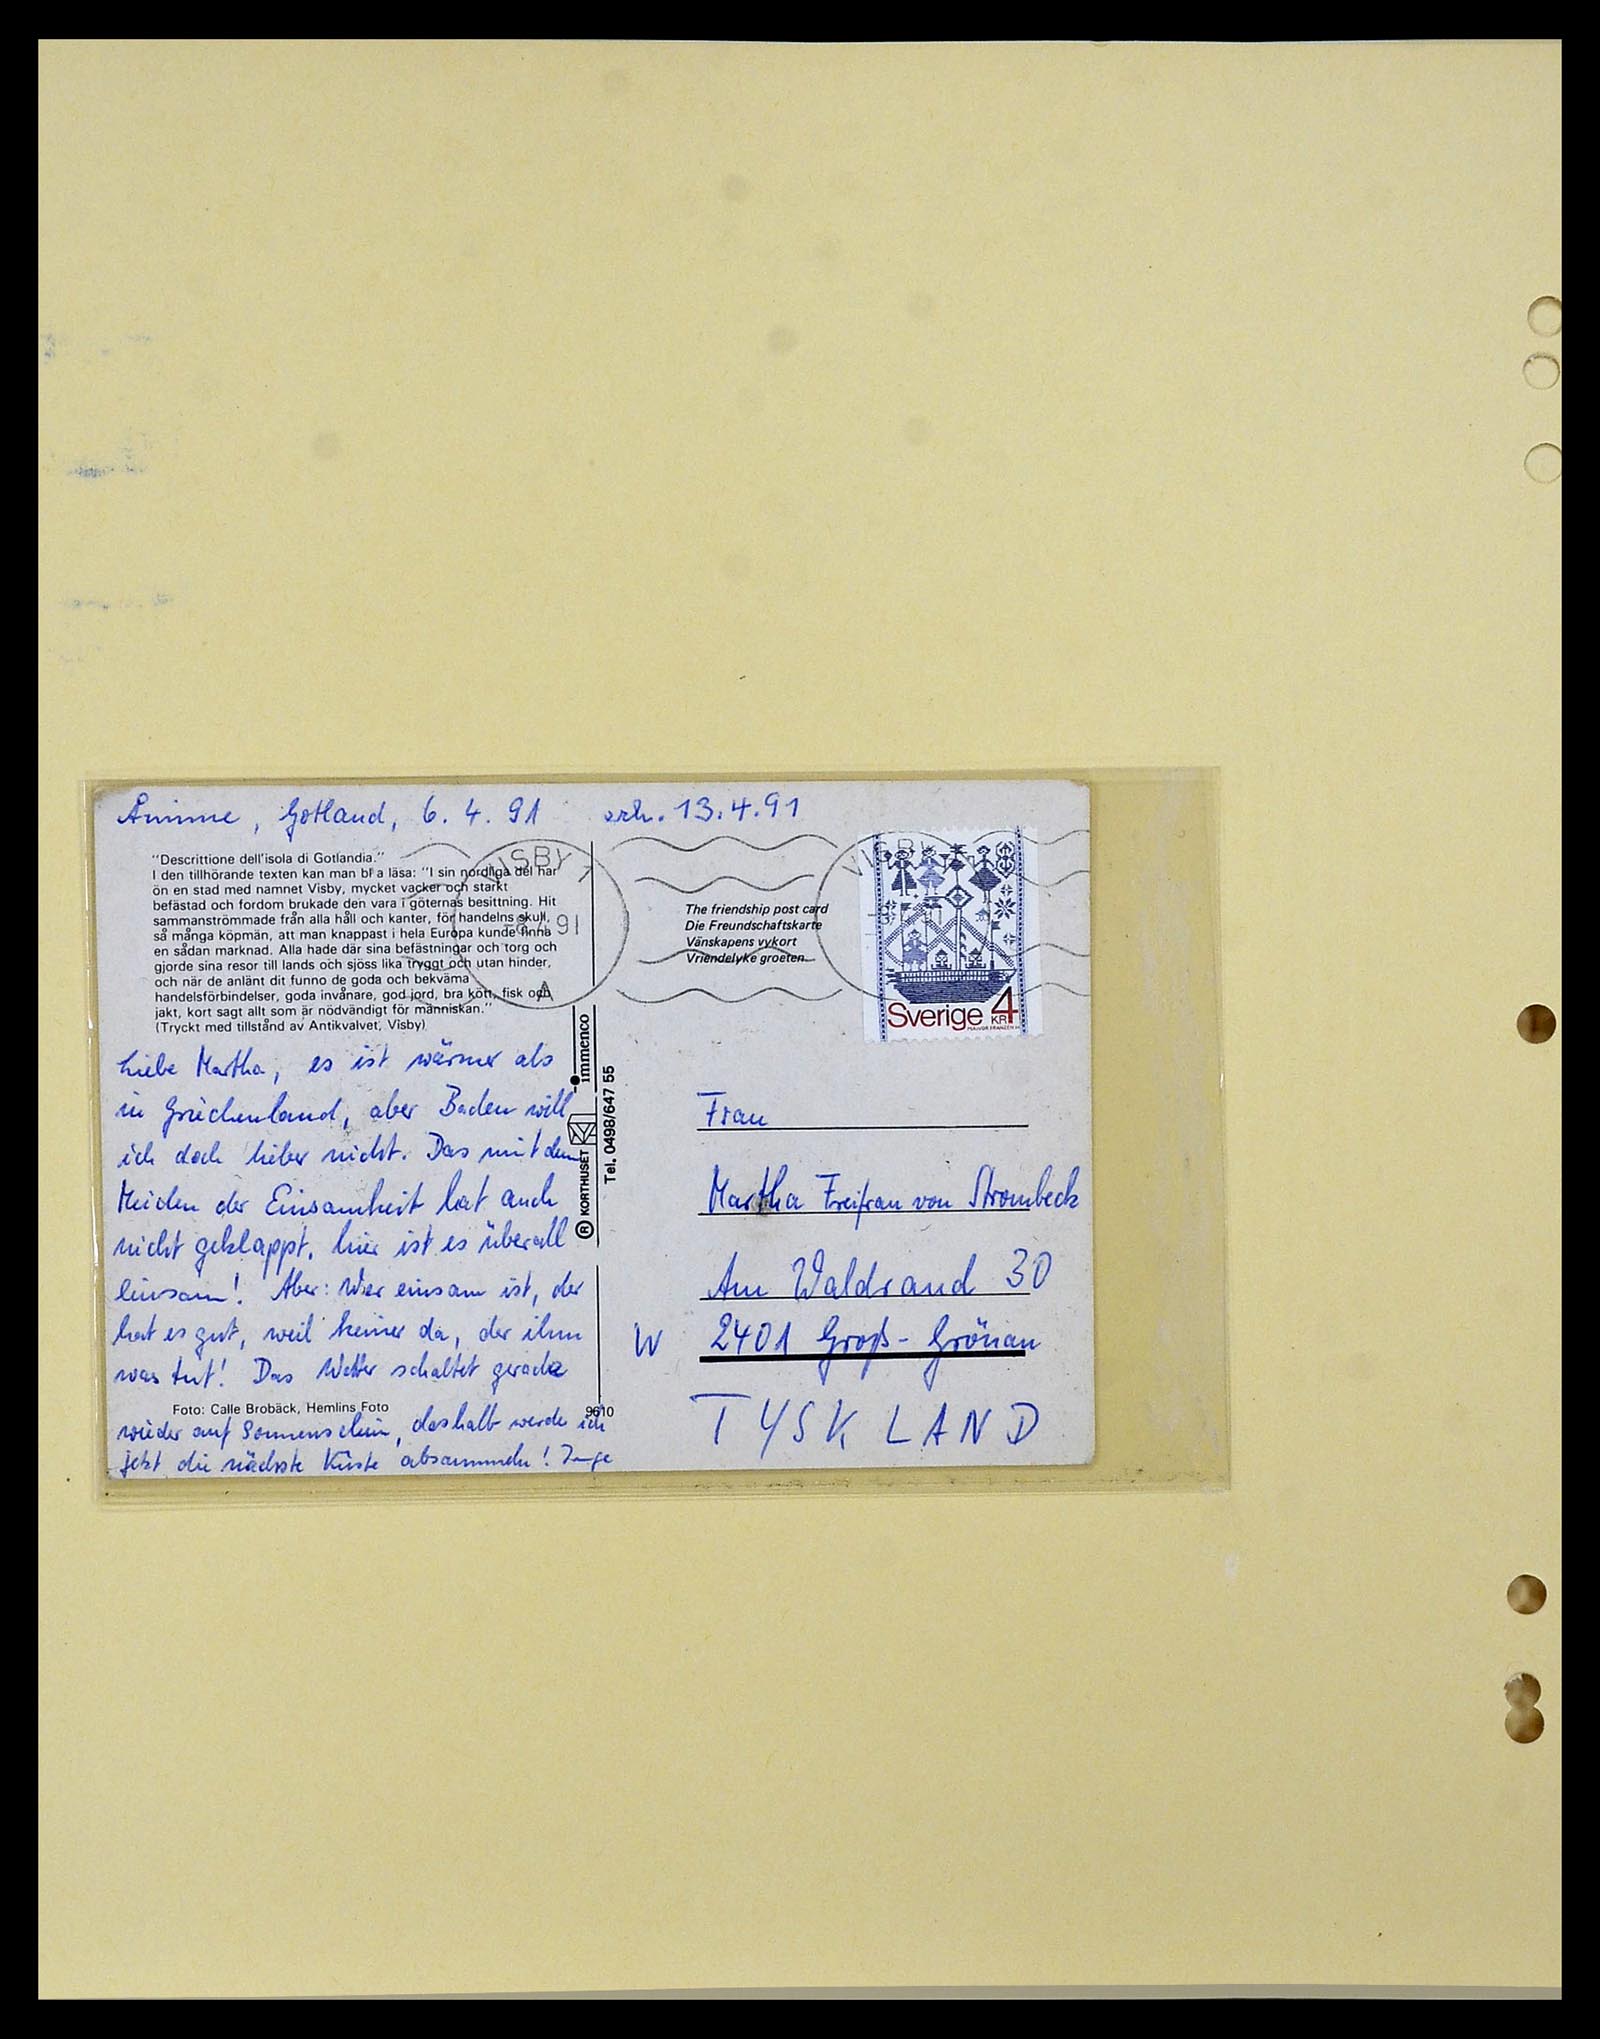 Åminne, Gotland, 6. 4. 91 erh. 13.4.91
"Descrittione dell'isola di Gotlandia."
I den tillhörande texten kan man bl a läsa: "I sin nordliga del har
ön en stad med namnet Visby, mycket vacker och starkt
befästad och fordom brukade den vara i göternas besittning. Hit
sammanströmmade från alla håll och kanter, för handelns skull,
så många köpmän, att man knappast i hela Europa kunde finna
en sådan marknad. Alla hade där sina befästningar och torg och
gjorde sina resor till lands och sjöss lika tryggt och utan hinder,
och när de anlänt dit funno de goda och bekväma
handelsförbindelser, goda invånare, god jord, bra kött, fisk och
jakt, kort sagt allt som är nödvändigt för människan."
(Tryckt med tillstånd av Antikvalvet, Visby)
Liebe Martha, es ist wärmer als
in Griechenland, aber Baden will
ich doch lieber nicht. Das mit dem
Meiden der Einsamkeit hat auch
nicht geklappt, hier ist es überall
einsam! Aber: Wer einsam ist, der
hat es gut, weil keiner da, der ihm
was tut! Das Wetter schaltet gerade
Foto: Calle Brobäck, Hemlins Foto
9610
wieder auf Sonnenschein, deshalb werde ich
jetzt die nächste Küste absammeln! Inge
VISBY 1
91
A
® KORTHUSET
immenco
Tel. 0498/647 55
The friendship post card
Die Freundschaftskarte
Vänskapens vykort
Vriendelyke groeten
VISBY
Sverige 4
KR
MAJVOR FRANZÉN
Frau
Martha Freifrau von Strombeck
Am Waldrand 30
W 2401 Groß-Grönau
TYSKLAND